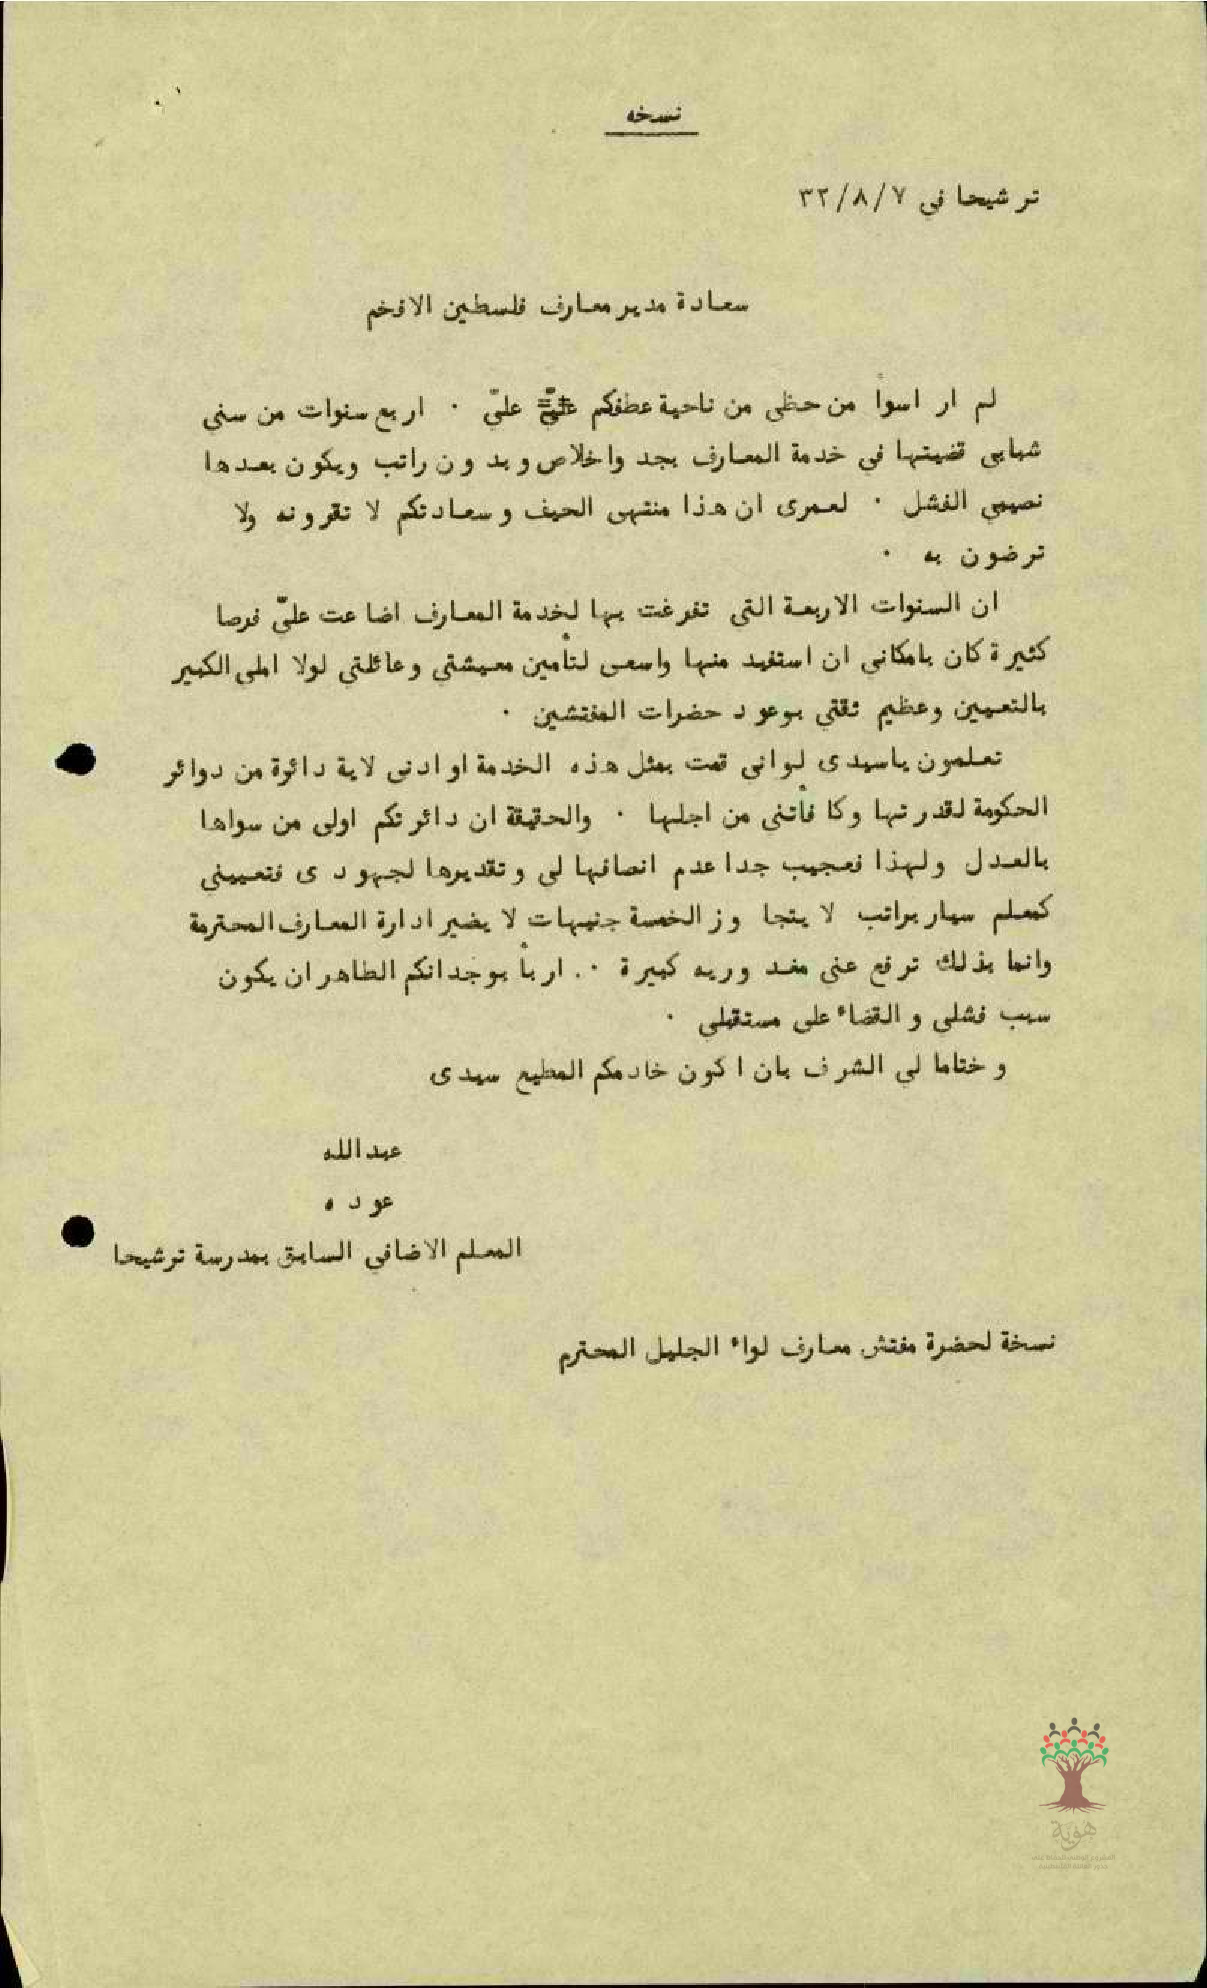 نسخه
ترشيحا في ٣٢/٨/٧
سعادة مدير معارف فلسطين الافخم
لم ار اسوأ من حظي من ناحية عطفكم عليّ . اربع سنوات من سني
شبابي قضيتها في خدمة المعارف بجد واخلاص وبدون راتب ويكون بعدها
نصيبي الفشل . لعمرى ان هذا منتهى الحيف وسعادتكم لا تقرونه ولا
ترضون به .
ان السنوات الاربعة التي تفرغت بها لخدمة المعارف اضاعت عليّ فرصا
كثيرة كان بامكاني ان استفيد منها واسعى لتأمين معيشتي وعائلتي لولا املي الكبير
بالتعيين وعظيم ثقتي بوعود حضرات المفتشين .
تعلمون ياسيدى لو اني قمت بمثل هذه الخدمة او ادنى لاية دائرة من دوائر
الحكومة لقدرتها وكافأتني من اجلها . والحقيقة ان دائرتكم اولى من سواها
بالعدل ولهذا فعجيب جدا عدم انصافها لي وتقديرها لجهودى فتعييني
كمعلم سيار براتب لا يتجاوز الخمسة جنيهات لا يضير ادارة المعارف المحترمة
وانما بذلك ترفع عني مغدوريه كبيرة .. اربأ بوجدانكم الطاهر ان يكون
سبب فشلي والقضاء على مستقبلي .
وختاما لي الشرف بان اكون خادمكم المطيع سيدى
عبدالله
عوده
المعلم الاضافي السابق بمدرسة ترشيحا
نسخة لحضرة مفتش معارف لواء الجليل المحترم
هوية